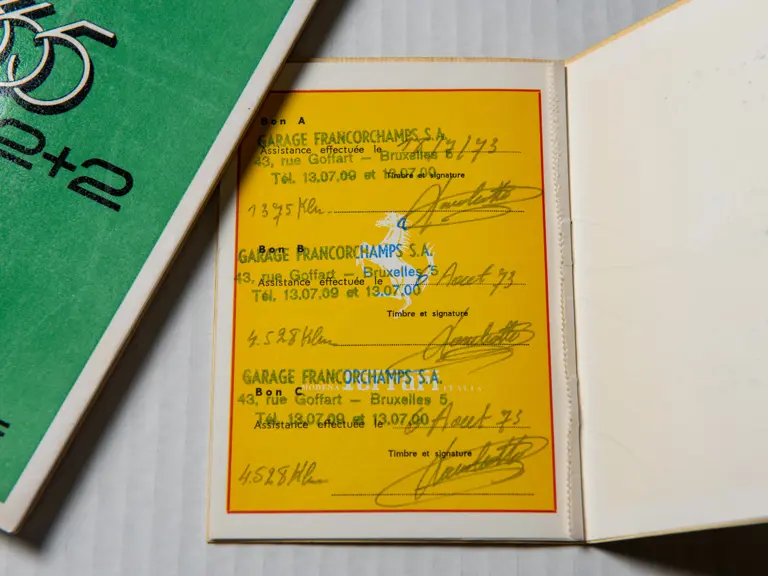 365
2+2
Bon A
GARAGE FRANCORCHAMPS S.A.
Assistance effectuée le /7/73
43, rue Goffart – Bruxelles 5
Tél. 13.07.09 et 13.07.00
Timbre et signature
1375 Klm
Bon B
GARAGE FRANCORCHAMPS S.A.
43, rue Goffart – Bruxelles 5
Assistance effectuée le 6 Aout 73
Tél. 13.07.09 et 13.07.00
Timbre et signature
4.528 Klm
GARAGE FRANCORCHAMPS S.A.
MODENA Ferrari ITALIA
Bon C
43, rue Goffart – Bruxelles 5
Tél. 13.07.09 et 13.07.00
Assistance effectuée le 6 Aout 73
Timbre et signature
4.528 Klm